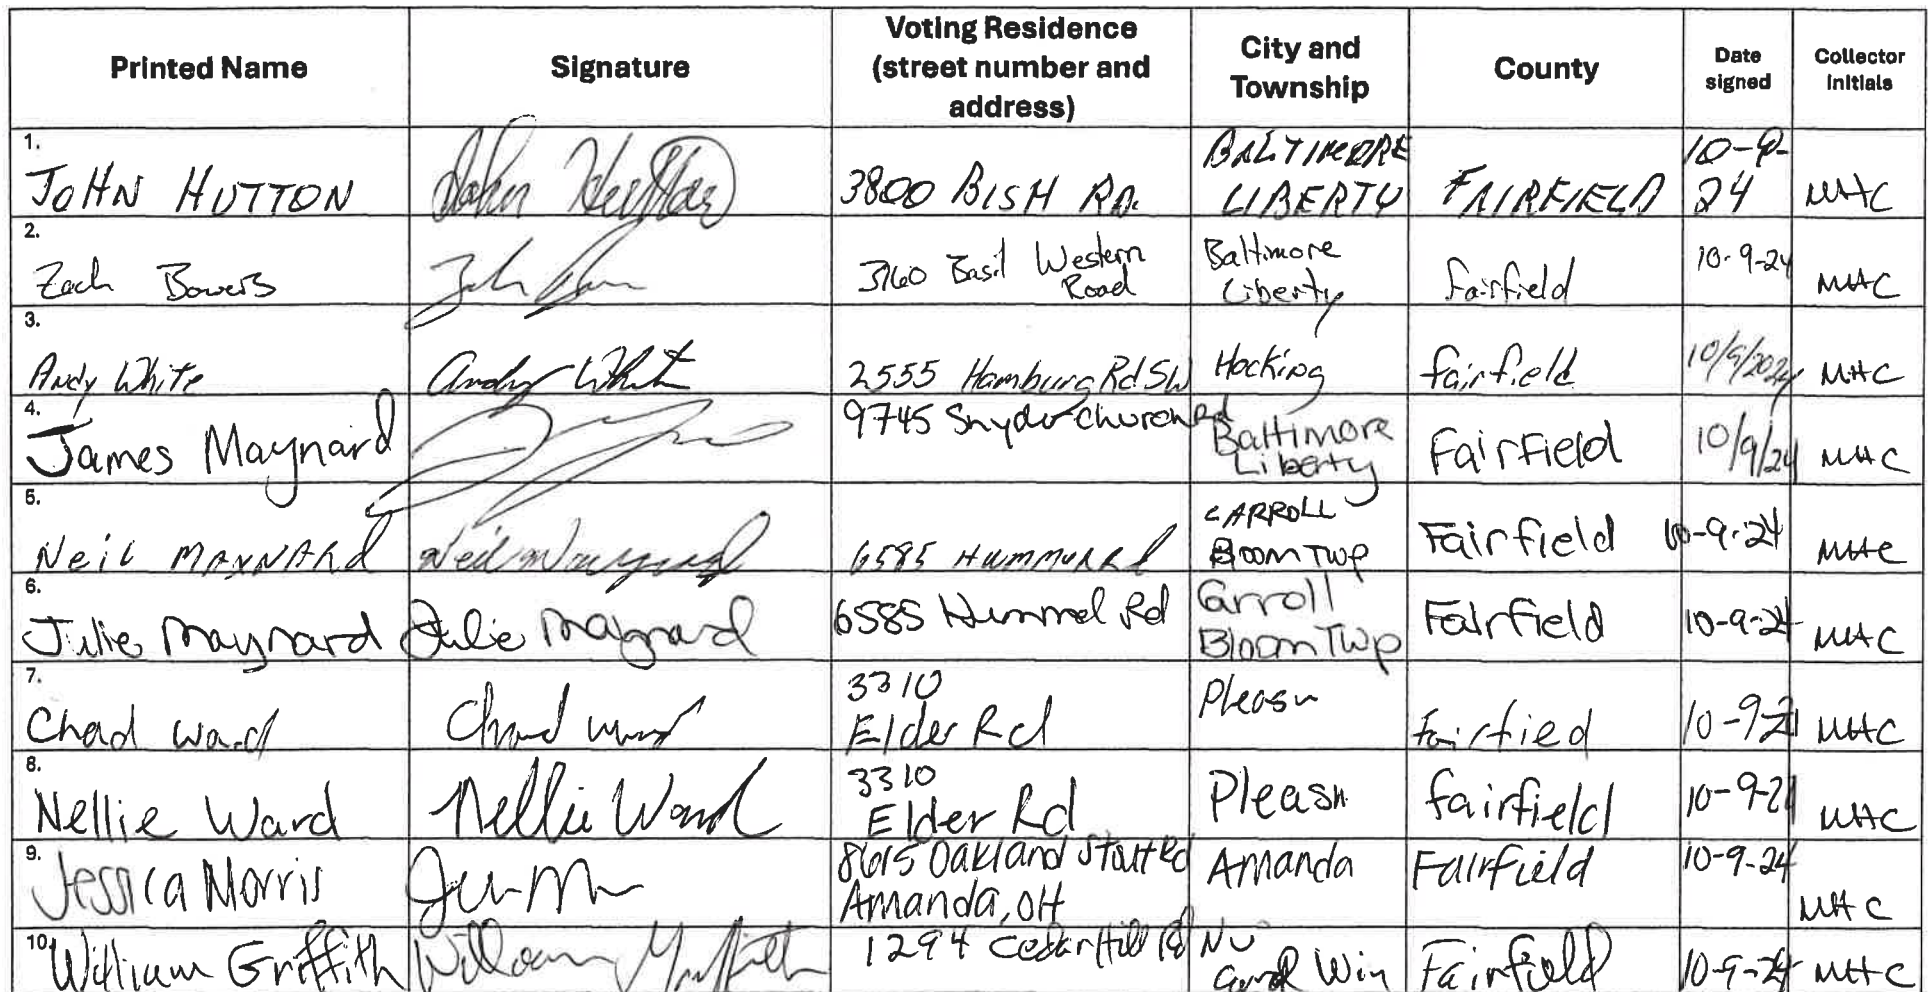 Printed Name
Signature
Voting Residence
(street number and
address)
City and
Township
County
Date
signed
Collector
initials
1.
JOHN HUTTON
John Hutton
3800 BISH RD.
BALTIMORE
LIBERTY
FAIRFIELD
10-9-
24
MHC
2.
Zach Bowers
3160 Basil Western
Road
Baltimore
Liberty
fairfield
10-9-24
MHC
3.
Andy White
Andy White
2555 Hamburg Rd SW
Hocking
fairfield
10/9/2024
MHC
4.
James Maynard
9745 Snyder Church Rd
Baltimore
Liberty
Fairfield
10/9/24
MHC
5.
Neil MAYNARD
Neil Maynard
6585
CARROLL
Bloom Twp
Fairfield
10-9-24
MHC
6.
Julie Maynard
Julie Maynard
6585 Hummel Rd
Carroll
Bloom Twp
Fairfield
10-9-24
MHC
7.
Chad Ward
Chad Ward
3310
Elder Rd
Pleasn
Fairfied
10-9-24
MHC
8.
Nellie Ward
Nellie Ward
3310
Elder Rd
Pleasn
fairfield
10-9-24
MHC
9.
Jessica Morris
8615 Oakland Stout Rd
Amanda, OH
Amanda
Fairfield
10-9-24
MHC
10.
William Griffith
William Griffith
1294 Cedar Hill Rd
Fairfield
10-9-24
MHC